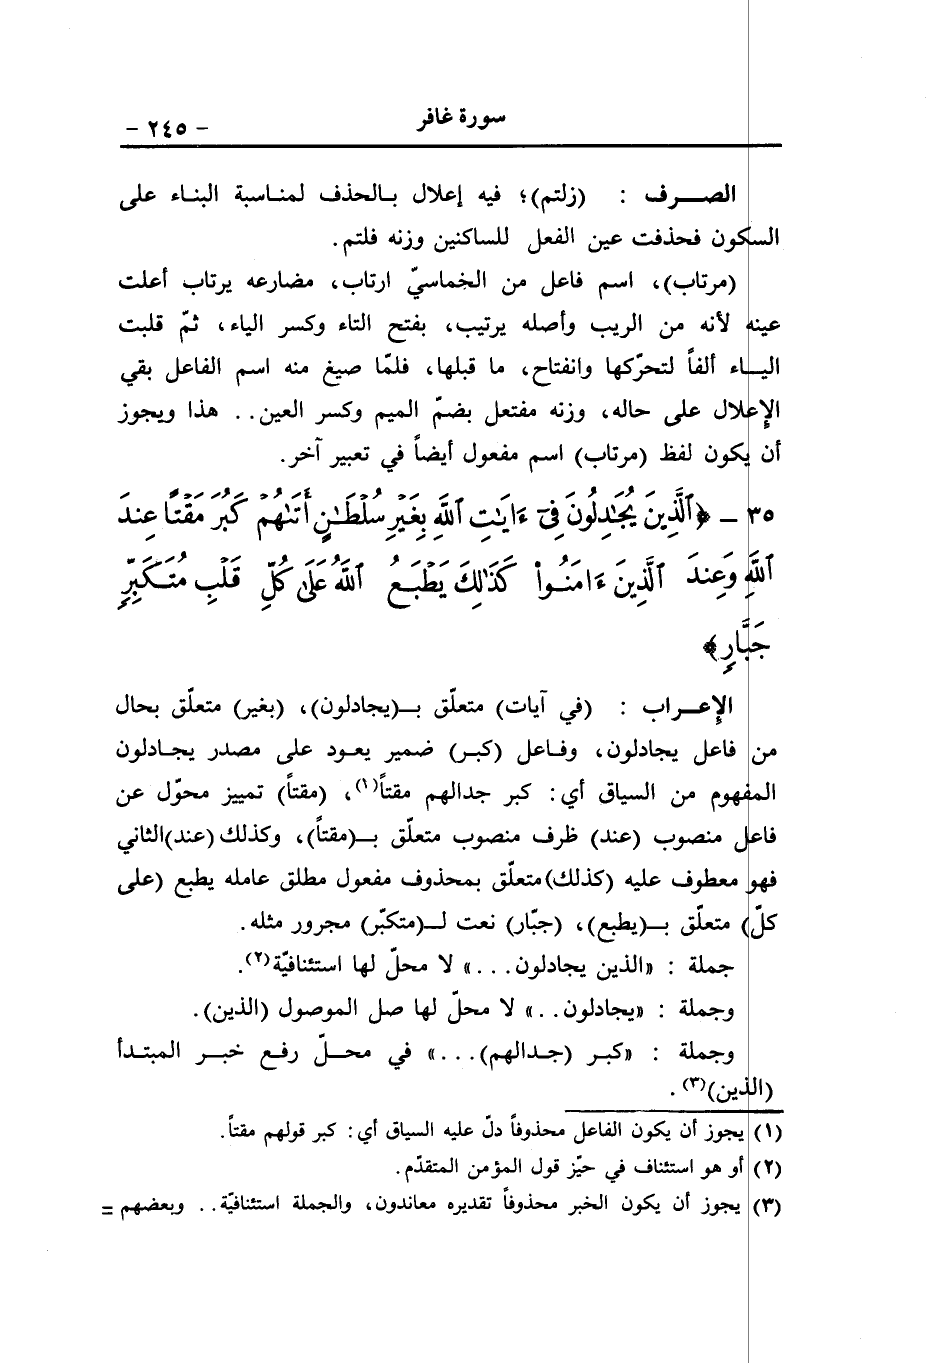 سورة غافر
- ٢٤٥ -
الصـــرف : (زلتم)؛ فيه إعلال بـالحذف لمنـاسبة البنـاء على
السكون فحذفت عين الفعل للساكنين وزنه فلتم.
(مرتاب)، اسم فاعل من الخماسيّ ارتاب، مضارعه يرتاب أعلت
عينه لأنه من الريب وأصله يرتيب، بفتح التاء وكسر الياء، ثمّ قلبت
اليـــاء ألفاً لتحرّكها وانفتاح، ما قبلها، فلمّا صيغ منه اسم الفاعل بقي
الإعلال على حاله، وزنه مفتعل بضمّ الميم وكسر العين.. هذا ويجوز
أن يكون لفظ (مرتاب) اسم مفعول أيضاً في تعبير آخر.
٣٥ - ﴿ٱلَّذِينَ يُجَٰدِلُونَ فِىٓ ءَايَٰتِ ٱللَّهِ بِغَيْرِ سُلْطَٰنٍ أَتَىٰهُمْ كَبُرَ مَقْتًا عِندَ
ٱللَّهِ وَعِندَ ٱلَّذِينَ ءَامَنُوا۟ كَذَٰلِكَ يَطْبَعُ ٱللَّهُ عَلَىٰ كُلِّ قَلْبِ مُتَكَبِّرٍ
جَبَّارٍ﴾
الإعـــراب : (في آيات) متعلّق بـ(يجادلون)، (بغير) متعلّق بحال
من فاعل يجادلون، وفـاعل (كبـر) ضمير يعـود على مصدر يجـادلون
المفهوم من السياق أي: كبر جدالهم مقتاً(١)، (مقتاً) تمييز محوّل عن
فاعل منصوب (عند) ظرف منصوب متعلّق بـ(مقتاً)، وكذلك (عند)الثاني
فهو معطوف عليه (كذلك)متعلّق بمحذوف مفعول مطلق عامله يطبع (على
كلّ) متعلّق بـ(يطبع)، (جبّار) نعت لـ(متكبّر) مجرور مثله.
جملة : «الذين يجادلون...» لا محلّ لها استئنافيّة(٢).
وجملة : «يجادلون..» لا محلّ لها صل الموصول (الذين).
وجملة : «كبـر (جـدالهم)...» في محـلّ رفـع خبـر المبتـدأ
(الذين)(٣).
(١) يجوز أن يكون الفاعل محذوفاً دلّ عليه السياق أي: كبر قولهم مقتاً.
(٢) أو هو استئناف في حيّز قول المؤمن المتقدّم.
(٣) يجوز أن يكون الخبر محذوفاً تقديره معاندون، والجملة استئنافيّة.. وبعضهم =